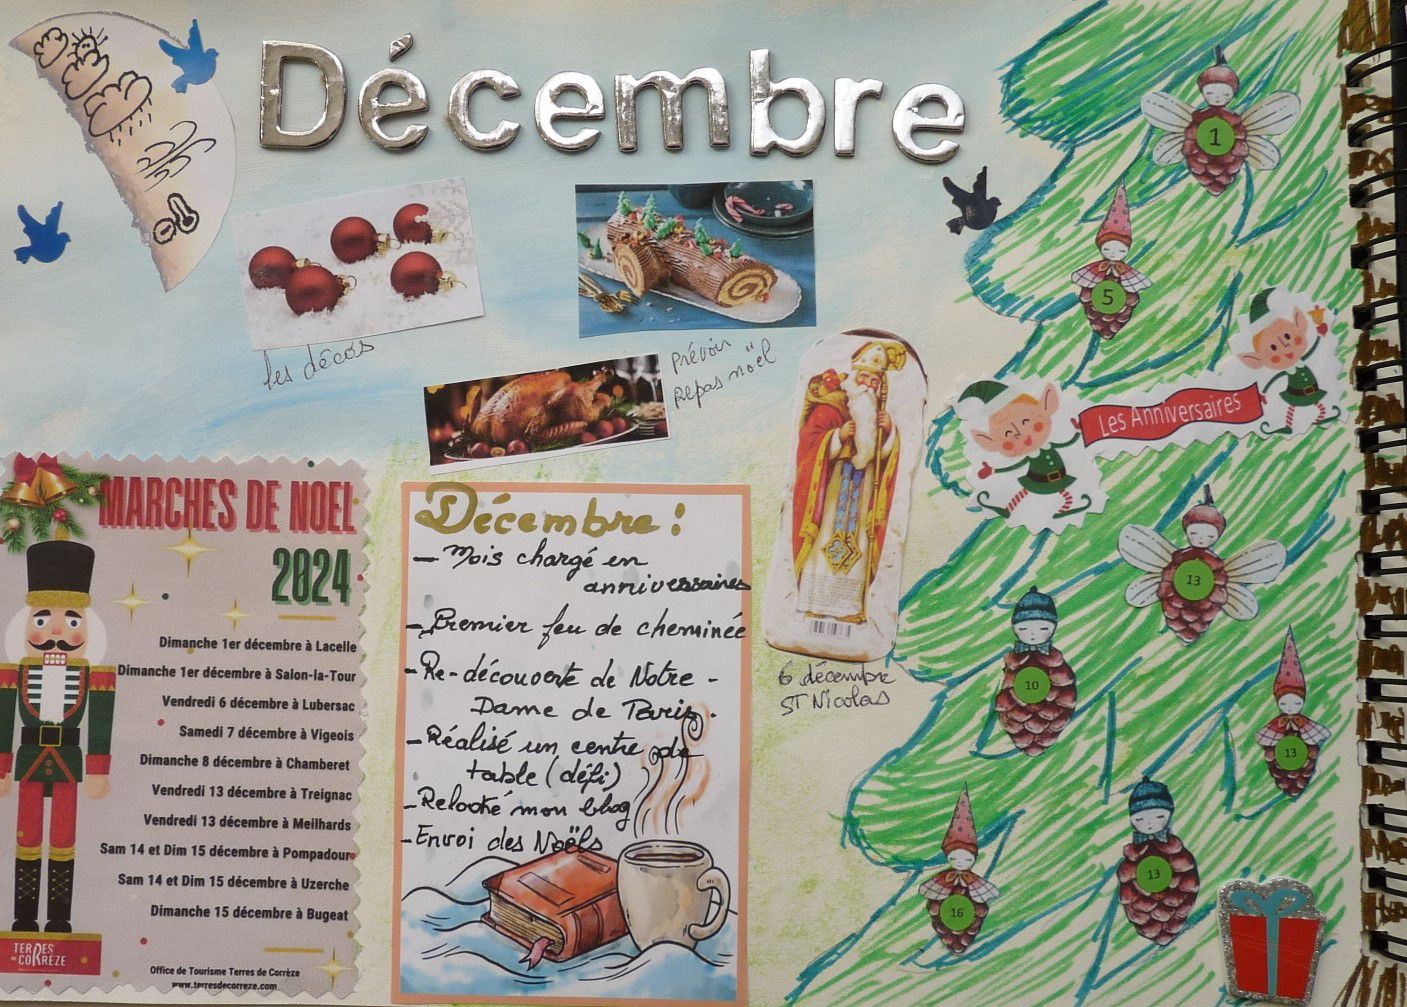 Décembre
1
5
les décos
Prévoir
Repas noël
Les Anniversaires
MARCHES DE NOEL
2024
Dimanche 1er décembre à Lacelle
Dimanche 1er décembre à Salon-la-Tour
Vendredi 6 décembre à Lubersac
Samedi 7 décembre à Vigeois
Dimanche 8 décembre à Chamberet
Vendredi 13 décembre à Treignac
Vendredi 13 décembre à Meilhards
Sam 14 et Dim 15 décembre à Pompadour
Sam 14 et Dim 15 décembre à Uzerche
Dimanche 15 décembre à Bugeat
TERRES
DE CORRÈZE
Office de Tourisme Terres de Corrèze
www.terresdecorreze.com
Décembre !
- Mois chargé en
anniversaires
- Premier feu de cheminée
- Re-découverte de Notre -
Dame de Paris.
- Réalisé un centre de
table (défi)
- Relooké mon blog
- Envoi des Noëls
6 décembre
ST Nicolas
13
10
13
13
16